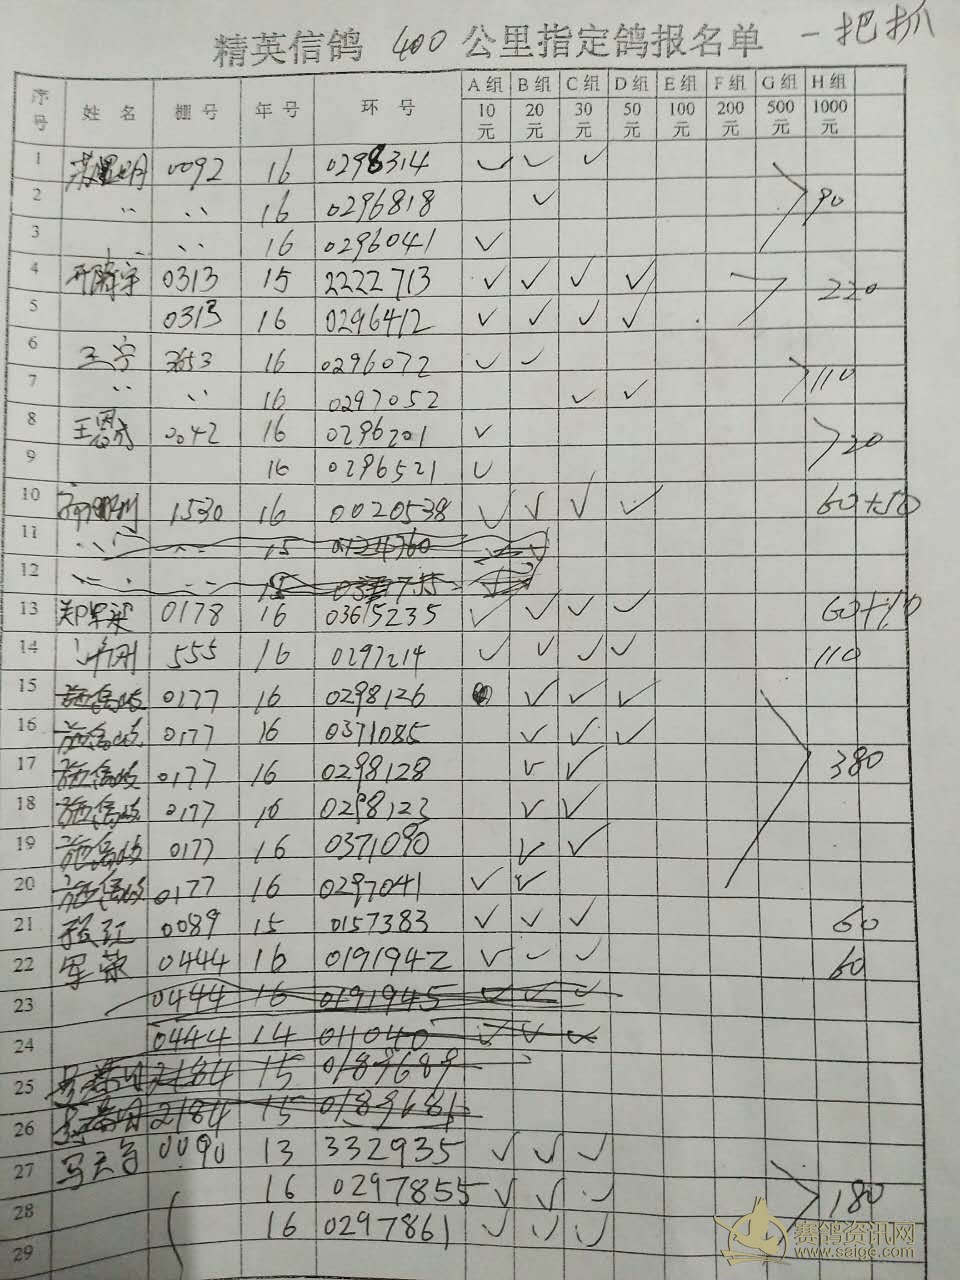 精英信鸽 400 公里指定鸽报名单 一把抓
序号 姓名 棚号 年号 环号 A组 10元 B组 20元 C组 30元 D组 50元 E组 100元 F组 200元 G组 500元 H组 1000元
1 0092 16 0298314 ✓ ✓ ✓
2 〃 〃 16 0296818 ✓ 90
3 〃 〃 16 0296041 ✓
4 0313 15 2222713 ✓ ✓ ✓ ✓ 220
5 0313 16 0296412 ✓ ✓ ✓ ✓
6 王宁 3653 16 0296072 ✓ ✓
7 〃 〃 16 0297052 ✓ ✓ 110
8 0042 16 0296201 ✓ 20
9 16 0296521 ✓
10 1530 16 0020538 ✓ ✓ ✓ ✓ 60+50
11 〃 〃 15
12 〃 〃 15
13 0178 16 03615235 ✓ ✓ ✓ ✓
14 555 16 0297214 ✓ ✓ ✓ ✓ 110
15 0177 16 0298126 ✓ ✓ ✓
16 0177 16 0371085 ✓ ✓ ✓
17 0177 16 0298128 ✓ ✓ 380
18 0177 16 0298123 ✓ ✓
19 0177 16 0371090 ✓ ✓
20 0177 16 0297041 ✓ ✓
21 0089 15 0157383 ✓ ✓ ✓ 60
22 军荣 0444 16 0191942 ✓ ✓ ✓ 60
23 0444 16 0191945 ✓ ✓ ✓
24 0444 14 011040 ✓ ✓ ✓
25 2184 15 0189689
26 2184 15 0189681
27 0090 13 332935 ✓ ✓ ✓
28 16 0297855 ✓ ✓ ✓ 180
29 16 0297861 ✓ ✓ ✓
赛鸽资讯网
www.saige.com